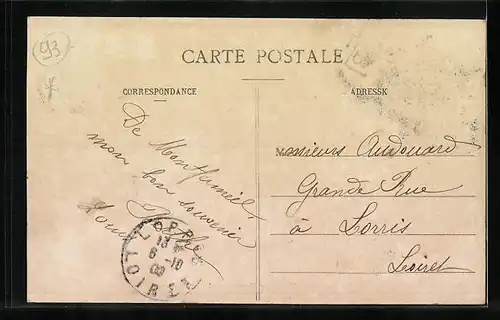 93
CARTE POSTALE
CORRESPONDANCE
ADRESSE
De Montfermeil
mon bon souvenir
Messieurs Audouard
Grande Rue
à Lorris
Loiret
LORRIS
6-10
LOIRET